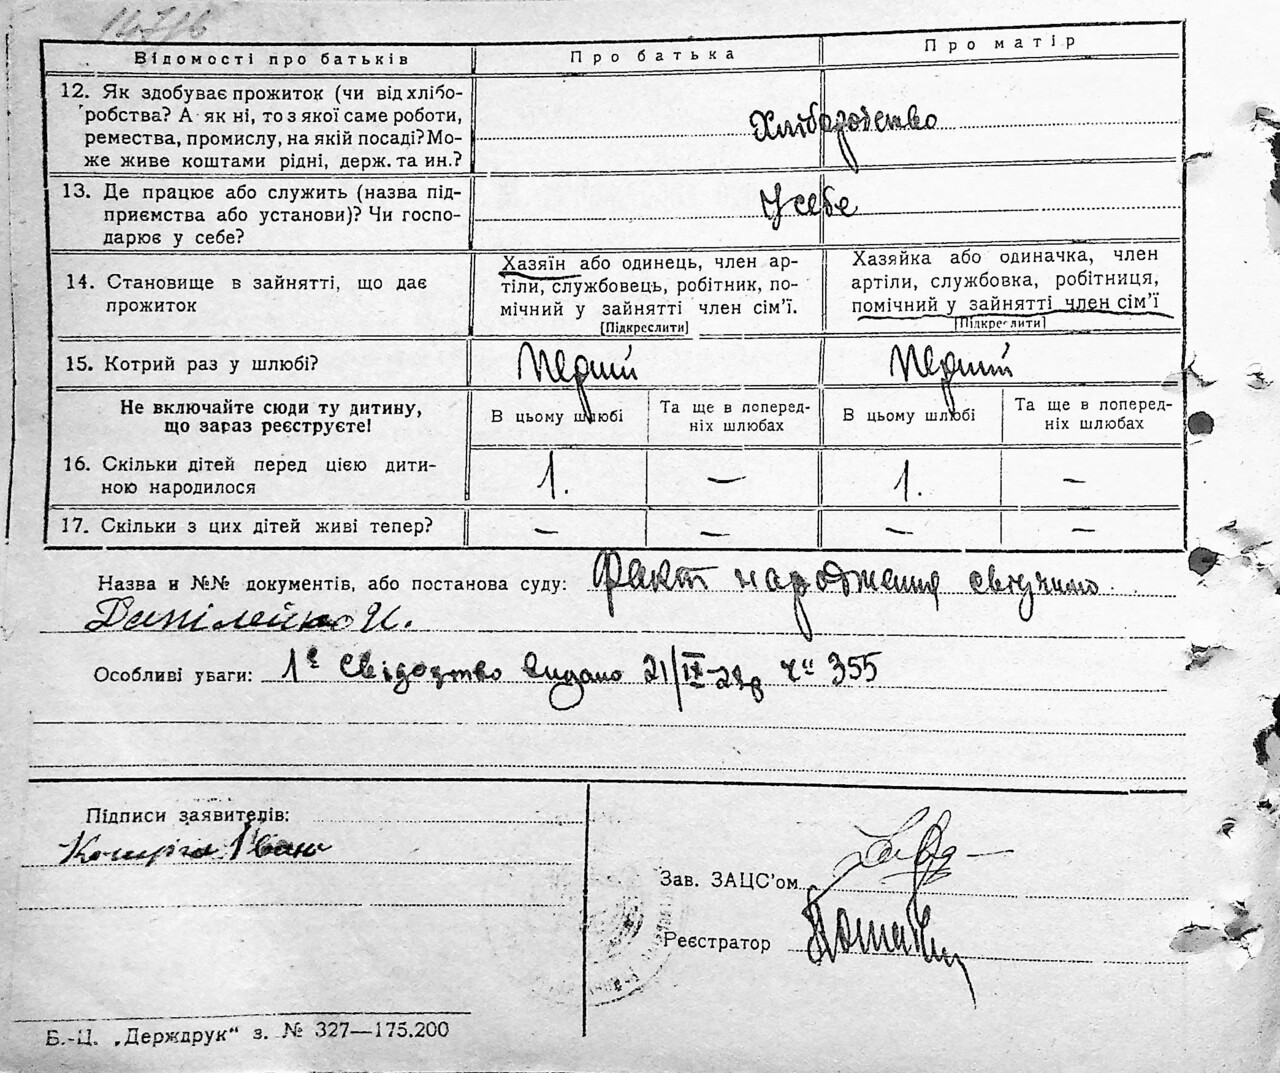 Відомості про батьків
Про батька
Про матір
12. Як здобуває прожиток (чи від хлібо-
робства? А як ні, то з якої саме роботи,
ремества, промислу, на якій посаді? Мо-
же живе коштами рідні, держ. та ин.?
Хліборобство
13. Де працює або служить (назва під-
приємства або установи)? Чи госпо-
дарює у себе?
У себе
14. Становище в зайнятті, що дає
прожиток
Хазяїн або одинець, член ар-
тіли, службовець, робітник, по-
мічний у зайнятті член сім’ї.
[Підкреслити]
Хазяйка або одиначка, член
артіли, службовка, робітниця,
помічний у зайнятті член сім’ї
[Підкреслити]
15. Котрий раз у шлюбі?
Перший
Перший
Не включайте сюди ту дитину,
що зараз реєструєте!
В цьому шлюбі
Та ще в поперед-
ніх шлюбах
В цьому шлюбі
Та ще в поперед-
ніх шлюбах
16. Скільки дітей перед цією дити-
ною народилося
1.
—
1.
—
17. Скільки з цих дітей живі тепер?
—
—
—
—
Назва и №№ документів, або постанова суду: Факт народження свідчимо
Данілейко И.
Особливі уваги: 1е Свідоцтво видано 21/IX-28р ч" 355
Підписи заявителів:
Іван
Зав. ЗАЦС’ом
Реєстратор
Б.-Ц. „Держдрук“ з. № 327—175.200